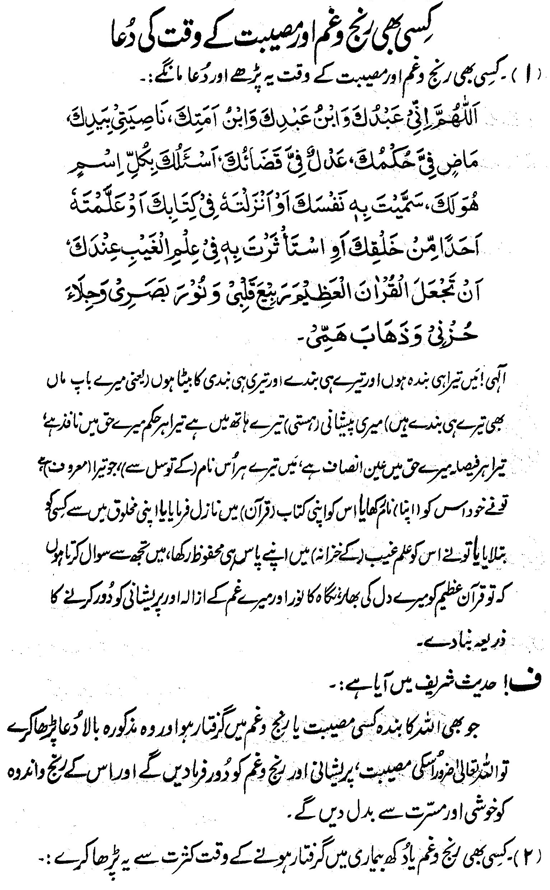 کسی بھی رنج و غم اور مصیبت کے وقت کی دُعا
(۱)۔ کسی بھی رنج و غم اور مصیبت کے وقت یہ پڑھے اور دُعا مانگے:۔
اَللّٰهُمَّ اِنِّیْ عَبْدُكَ وَابْنُ عَبْدِكَ وَابْنُ اَمَتِكَ، نَاصِيَتِیْ بِيَدِكَ،
مَاضٍ فِیَّ حُكْمُكَ، عَدْلٌ فِیَّ قَضَائُكَ، اَسْئَلُكَ بِكُلِّ اِسْمٍ
هُوَ لَكَ، سَمَّيْتَ بِهٖ نَفْسَكَ اَوْ اَنْزَلْتَهٗ فِیْ كِتَابِكَ اَوْ عَلَّمْتَهٗ
اَحَدًا مِّنْ خَلْقِكَ اَوِ اسْتَأْثَرْتَ بِهٖ فِیْ عِلْمِ الْغَيْبِ عِنْدَكَ،
اَنْ تَجْعَلَ الْقُرْاٰنَ الْعَظِيْمَ رَبِيْعَ قَلْبِیْ وَنُوْرَ بَصَرِیْ وَجِلَاءَ
حُزْنِیْ وَذَهَابَ هَمِّیْ۔
الٰہی! میں تیرا ہی بندہ ہوں اور تیرے ہی بندے اور تیری ہی بندی کا بیٹا ہوں (یعنی میرے باپ ماں
بھی تیرے ہی بندے ہیں) میری پیشانی (ہستی) تیرے ہاتھ میں ہے تیرا ہر حکم میرے حق میں نافذ ہے،
تیرا ہر فیصلہ میرے حق میں عین انصاف ہے، میں تیرے ہر اُس نام (کے توسل سے)، جو تیرا (معروف) ہے،
تو نے خود اس کو (اپنا) نام رکھا یا اُس کو اپنی کتاب (قرآن) میں نازل فرمایا یا اپنی مخلوق میں سے کسی کو
بتلایا یا تو نے اس کو علم غیب (کے خزانہ) میں اپنے پاس ہی محفوظ رکھا، میں تجھ سے سوال کرتا ہوں
کہ تو قرآن عظیم کو میرے دل کی بہار، نگاہ کا نور اور میرے غم کے ازالہ اور پریشانی کو دُور کرنے کا
ذریعہ بنا دے۔
ف! حدیث شریف میں آیا ہے:۔
جو بھی اللہ کا بندہ کسی مصیبت یا رنج و غم میں گرفتار ہو اور وہ مذکورہ بالا دُعا پڑھا کرے
تو اللہ تعالیٰ ضرور اُسکی مصیبت، پریشانی اور رنج و غم کو دُور فرمادیں گے اور اس کے رنج و اندوہ
کو خوشی اور مسرت سے بدل دیں گے۔
(۲)۔ کسی بھی رنج و غم یا دُکھ بیماری میں گرفتار ہونے کے وقت کثرت سے یہ پڑھا کرے:۔